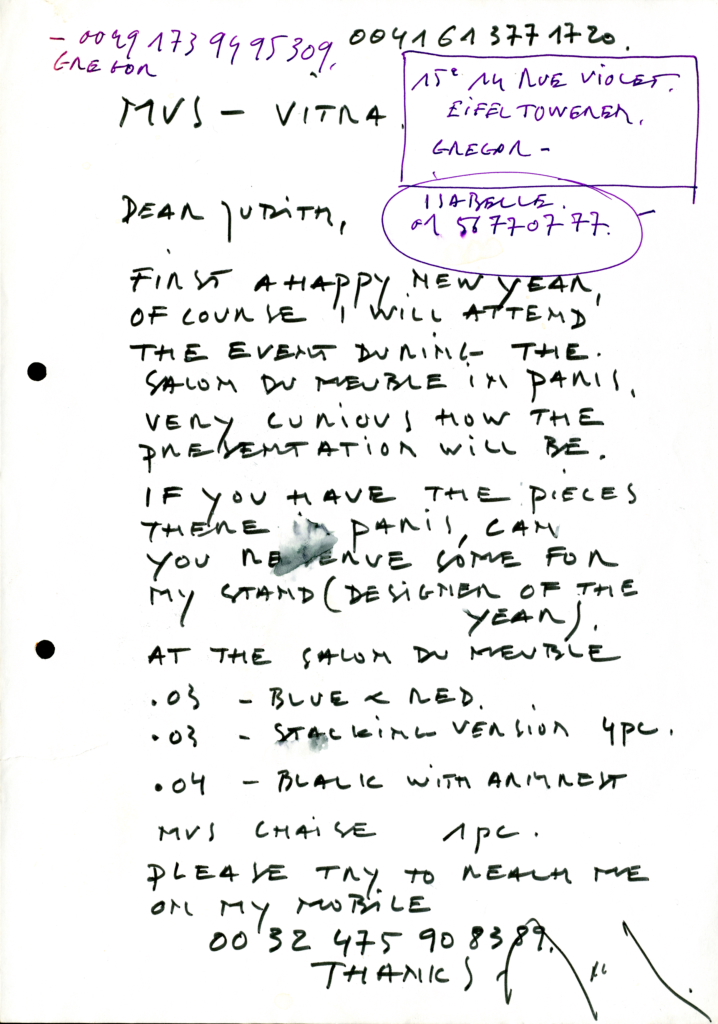 - 0049 173 9495309. 0041 61 377 1720.
GREGOR
15e 14 RUE VIOLET.
EIFEL TOWERER.
GREGOR -
MVS - VITRA.
ISABELLE.
01 56 77 07 77.
DEAR JUDITH,
FIRST A HAPPY NEW YEAR,
OF COURSE I WILL ATTEND
THE EVENT DURING THE.
SALON DU MEUBLE IN PARIS.
VERY CURIOUS HOW THE
PRESENTATION WILL BE.
IF YOU HAVE THE PIECES
THERE IN PARIS, CAN
YOU RESERVE SOME FOR
MY STAND (DESIGNER OF THE
YEAR).
AT THE SALON DU MEUBLE
.03 - BLUE & RED.
.03 - STACKING VERSION 4pc.
.04 - BLACK WITH ARMREST
MVS CHAISE 1pc.
PLEASE TRY TO REACH ME
ON MY MOBILE
00 32 475 90 83 89.
THANKS